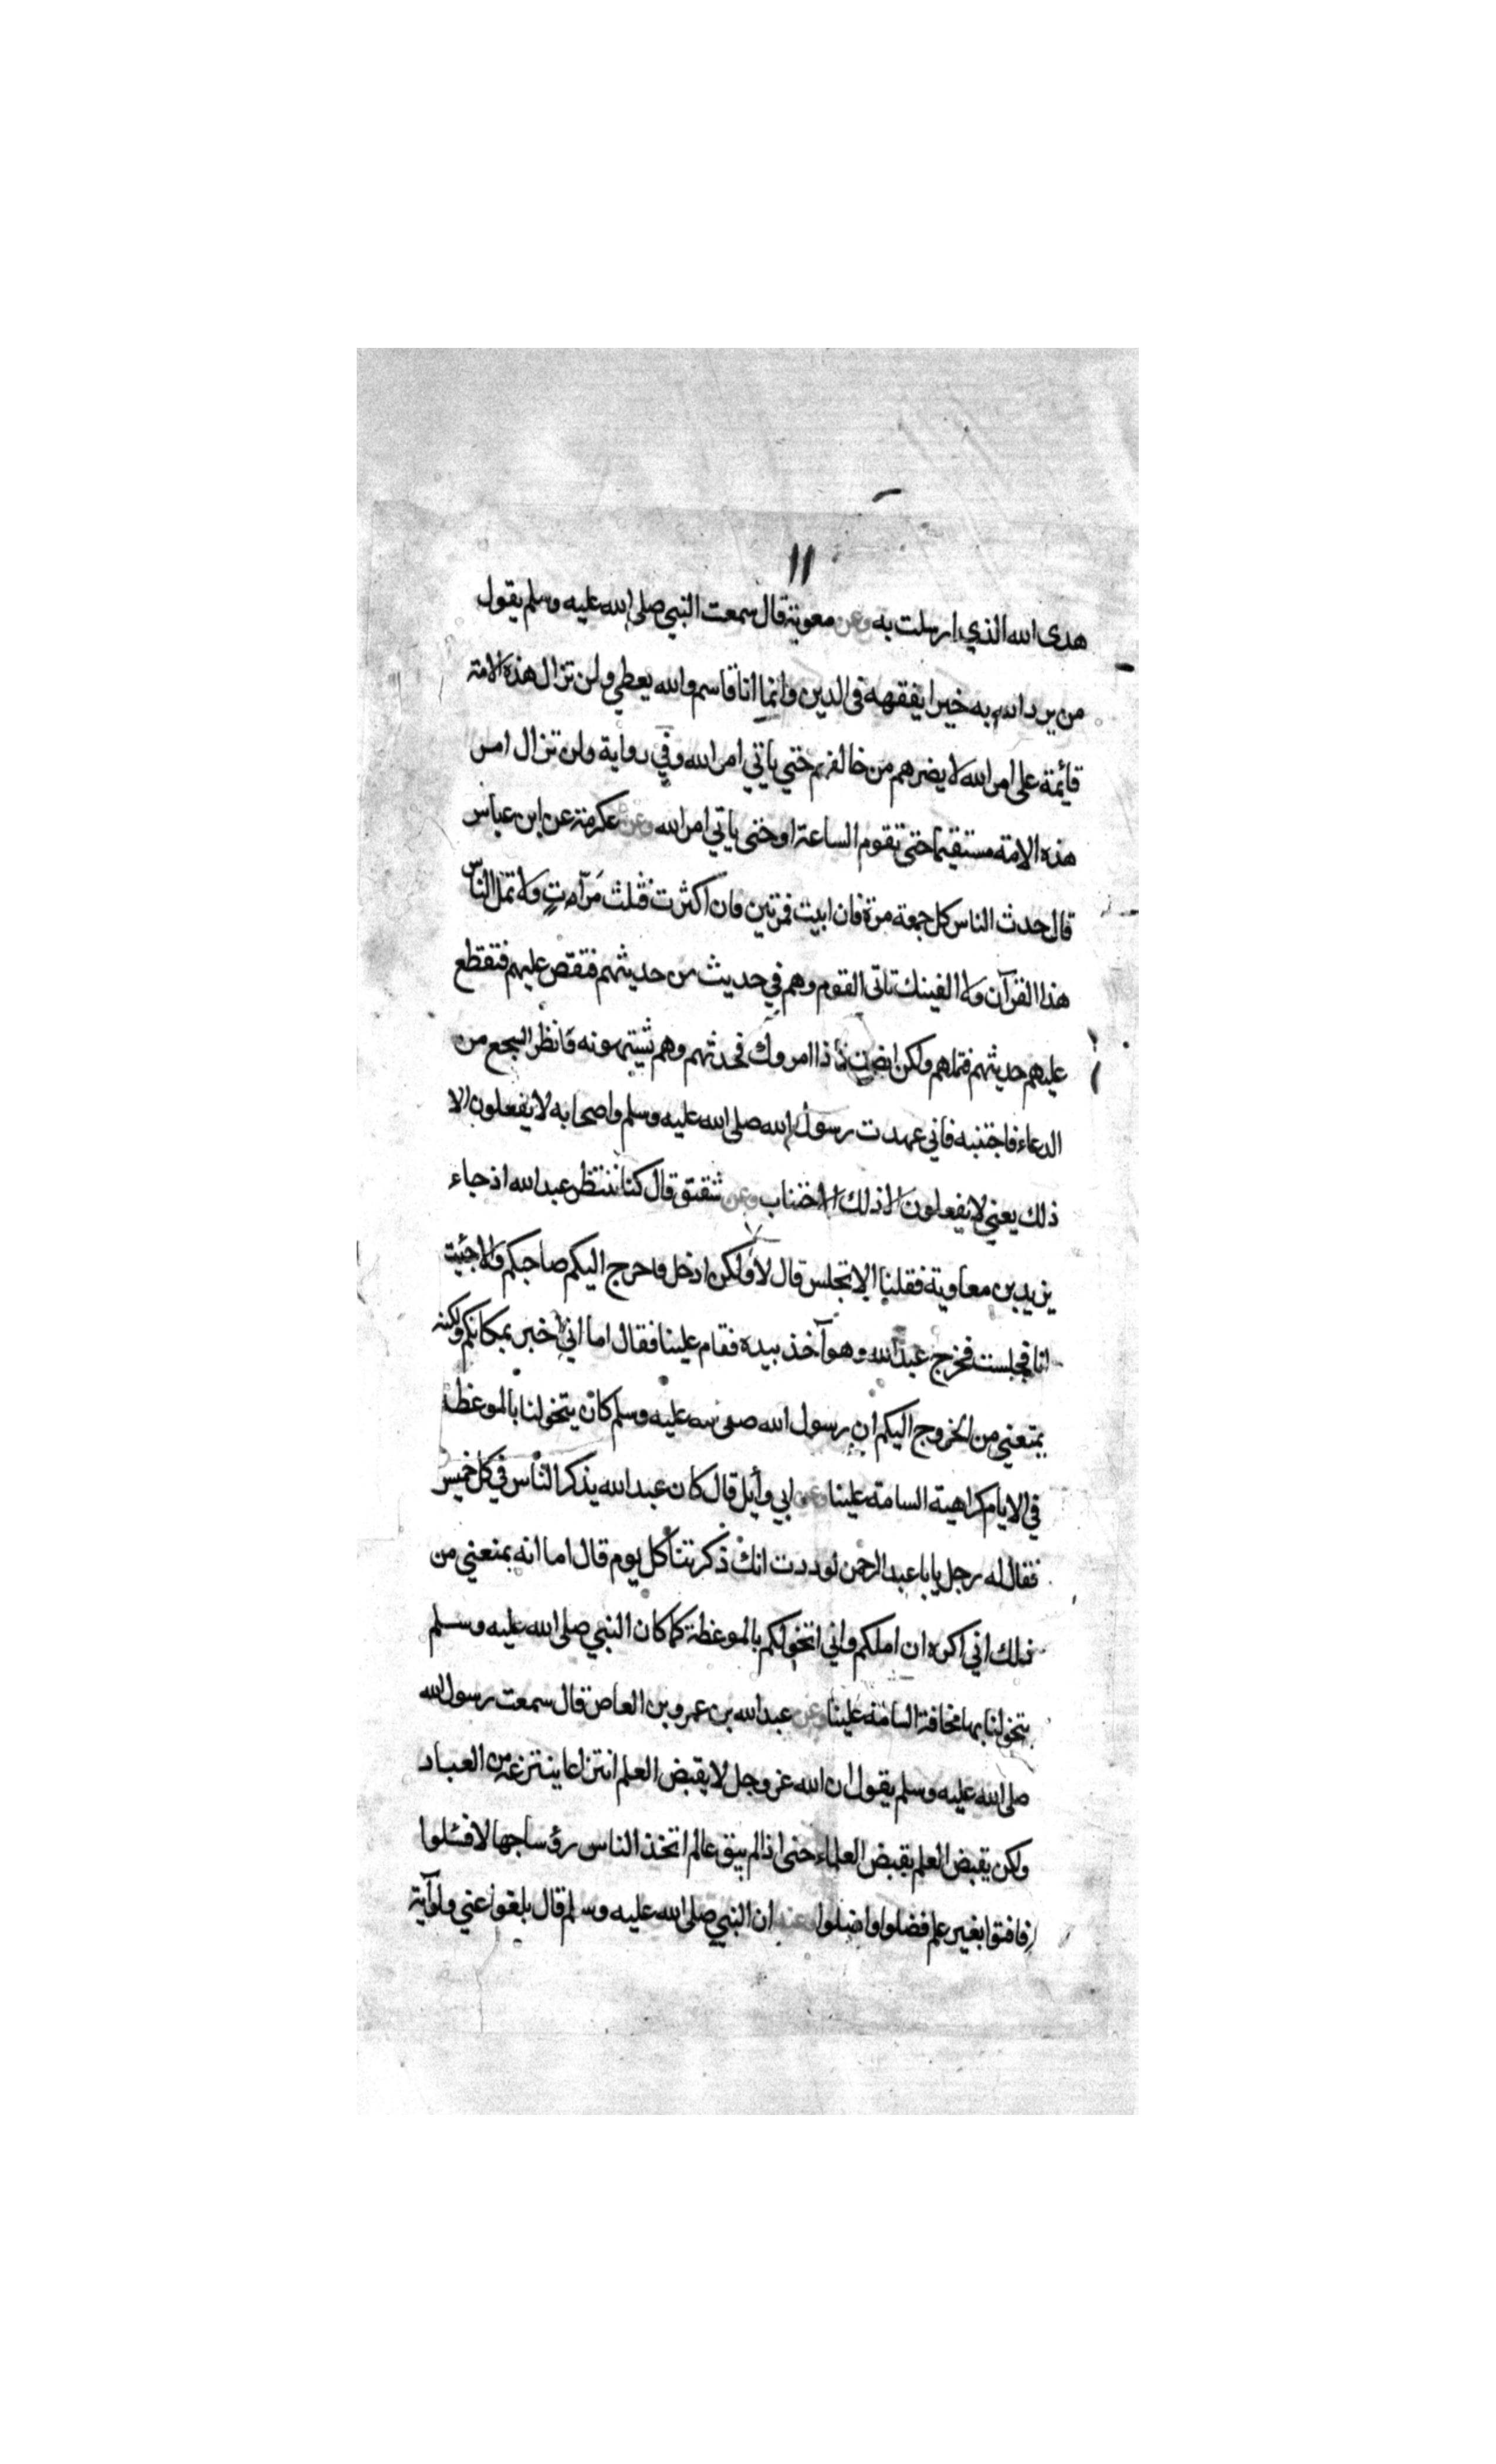 ١١
هدى الله الذي ارسلت به وعن معوية قال سمعت النبي صلى الله عليه وسلم يقول
من يرد الله به خيرا يفقهه فى الدين وانما انا قاسم والله يعطي ولن تزال هذه الامة
قائمة على امر الله لا يضرهم من خالفهم حتي ياتي امر الله وفي رواية ولن تزال امر
هذه الامة مستقيما حتى تقوم الساعة او حتى ياتي امر الله وعن عكرمة عن ابن عباس
قال حدث الناس كل جمعة مرة فان ابيت فمرتين فان اكثرت فثلث مرات ولا تمل الناس
هذا القرآن ولا الفينك تاتى القوم وهم في حديث من حديثهم فتقص عليهم فتقطع
عليهم حديثهم فتملهم ولكن انصت فاذا امروك فحدثهم وهم يشتهونه فانظر السجع من
الدعاء فاجتنبه فاني عهدت رسول الله صلى الله عليه وسلم واصحابه لا يفعلون الا
ذلك يعني لا يفعلون الا ذلك الاجتناب وعن شقيق قال كنا ننتظر عبد الله اذ جاء
يزيد بن معاوية فقلنا الا تجلس قال لا ولكن ادخل فاخرج اليكم صاحبكم والا جئت
انا فجلست فخرج عبد الله وهو آخذ بيده فقام علينا فقال اما اني اخبر بمكانكم ولكنه
يمنعني من الخروج اليكم ان رسول الله صلى الله عليه وسلم كان يتخولنا بالموعظة
في الايام كراهية السامة علينا وعن ابي وائل قال كان عبد الله يذكر الناس في كل خميس
فقال له رجل يا با عبد الرحمن لوددت انك ذكرتنا كل يوم قال اما انه يمنعني من
ذلك اني اكره ان املكم واني اتخولكم بالموعظة كما كان النبي صلى الله عليه وسلم
يتخولنا بها مخافة السامة علينا وعن عبد الله بن عمرو بن العاص قال سمعت رسول الله
صلى الله عليه وسلم يقول ان الله عز وجل لا يقبض العلم انتزاعا ينتزعه من العباد
ولكن يقبض العلم بقبض العلماء حتى اذا لم يبق عالم اتخذ الناس رؤسا جهالا فسئلوا
فافتوا بغير علم فضلوا واضلوا وعنه ان النبي صلى الله عليه وسلم قال بلغوا عني ولو آية